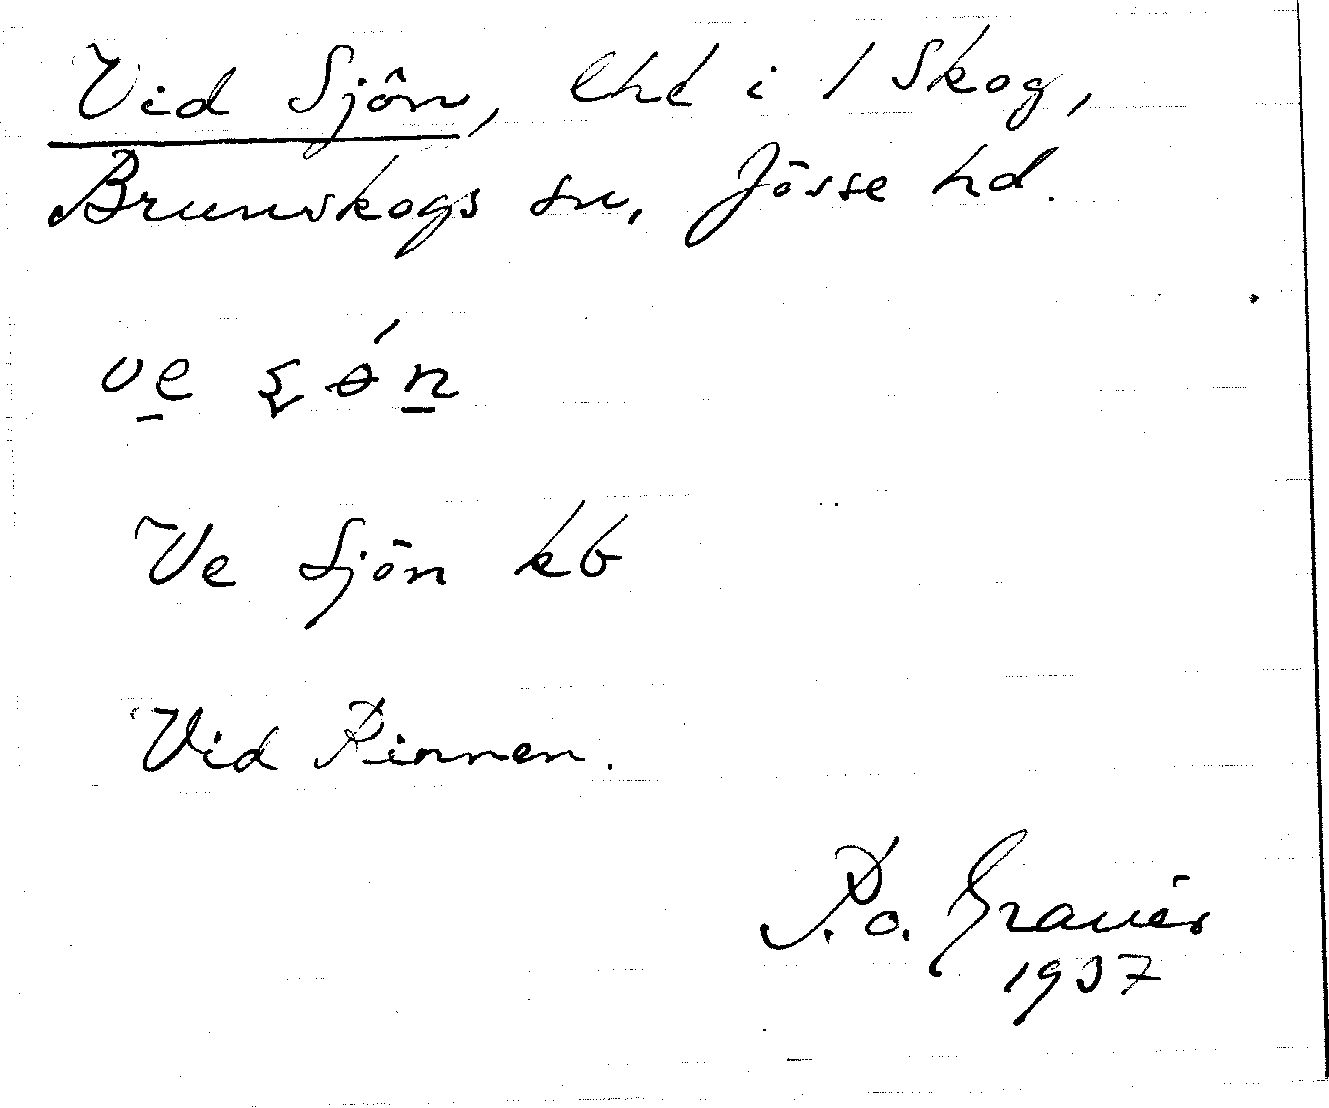 Vid Sjön, lht i 1 Skog,
Brunskogs sn, Jösse hd.
ve ʂɵ́n
Ve Sjön kb
Vid Rinnen.
P.o. Granér
1937